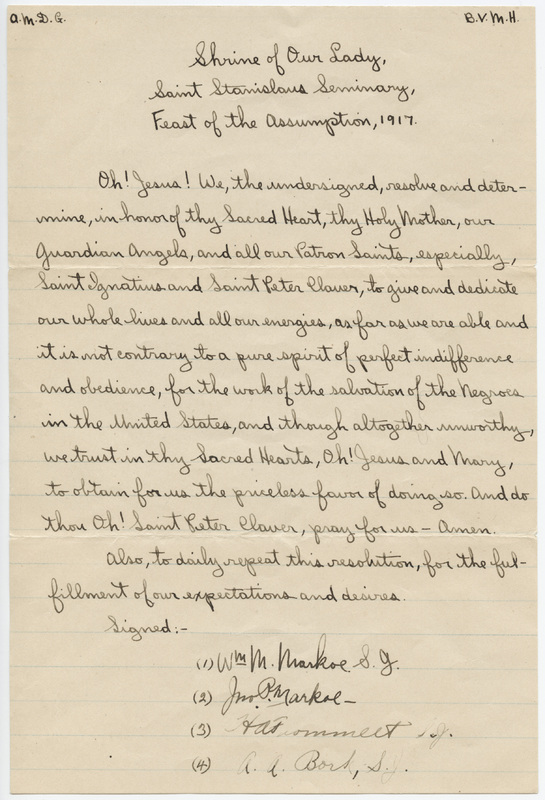 A.M.D.G. B.V.M.H.
Shrine of Our Lady,
Saint Stanislaus Seminary,
Feast of the Assumption, 1917.
Oh! Jesus! We, the undersigned, resolve and deter-
mine, in honor of thy Sacred Heart, thy Holy Mother, our
Guardian Angels, and all our Patron Saints, especially,
Saint Ignatius and Saint Peter Claver, to give and dedicate
our whole lives and all our energies, as far as we are able and
it is not contrary to a pure spirit of perfect indifference
and obedience, for the work of the salvation of the Negroes
in the United States, and though altogether unworthy,
we trust in thy Sacred Hearts, Oh! Jesus and Mary,
to obtain for us the priceless favor of doing so. And do
thou Oh! Saint Peter Claver, pray for us - Amen.
Also, to daily repeat this resolution, for the ful-
fillment of our expectations and desires.
Signed:-
(1) Wm M. Markoe S.J.
(2) Jno. P. Markoe -
(3) S.J.
(4) A. A. Bork, S.J.